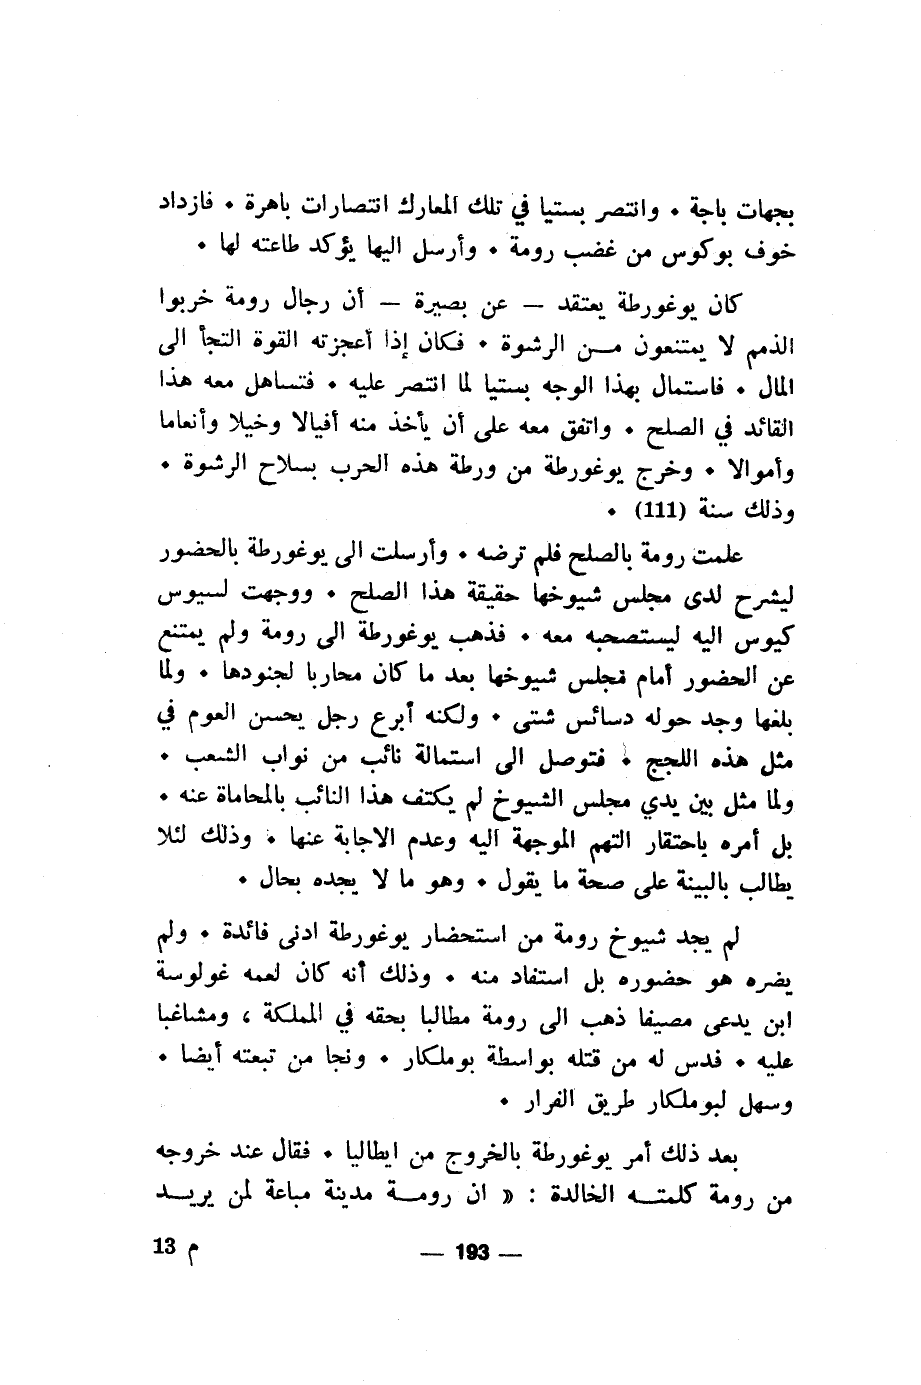 بجهات باجة . وانتصر بستيا في تلك المعارك انتصارات باهرة . فازداد
خوف بوكوس من غضب رومة . وأرسل اليها يؤكد طاعته لها .
كان يوغورطة يعتقد — عن بصيرة — أن رجال رومة خربوا
الذمم لا يمتنعون مـن الرشوة . فكان إذا أعجزته القوة التجأ الى
المال . فاستمال بهذا الوجه بستيا لما انتصر عليه . فتساهل معه هذا
القائد في الصلح . واتفق معه على أن يأخذ منه أفيالا وخيلا وأنعاما
وأموالا . وخرج يوغورطة من ورطة هذه الحرب بسلاح الرشوة .
وذلك سنة (111) .
علمت رومة بالصلح فلم ترضه . وأرسلت الى يوغورطة بالحضور
ليشرح لدى مجلس شيوخها حقيقة هذا الصلح . ووجهت لسيوس
كيوس اليه ليستصحبه معه . فذهب يوغورطة الى رومة ولم يمتنع
عن الحضور أمام مجلس شيوخها بعد ما كان محاربا لجنودها . ولما
بلغها وجد حوله دسائس شتى . ولكنه أبرع رجل يحسن العوم في
مثل هذه اللجج . فتوصل الى استمالة نائب من نواب الشعب .
ولما مثل بين يدي مجلس الشيوخ لم يكتف هذا النائب بالمحاماة عنه .
بل أمره باحتقار التهم الموجهة اليه وعدم الاجابة عنها . وذلك لئلا
يطالب بالبينة على صحة ما يقول . وهو ما لا يجده بحال .
لم يجد شيوخ رومة من استحضار يوغورطة ادنى فائدة . ولم
يضره هو حضوره بل استفاد منه . وذلك أنه كان لعمه غولوسة
ابن يدعى مصيفا ذهب الى رومة مطالبا بحقه في المملكة ، ومشاغبا
عليه . فدس له من قتله بواسطة بوملكار . ونجا من تبعته أيضا .
وسهل لبوملكار طريق الفرار .
بعد ذلك أمر يوغورطة بالخروج من ايطاليا . فقال عند خروجه
من رومة كلمتـه الخالدة : « ان رومـة مدينة مباعة لمن يريـد
— 193 —
م 13